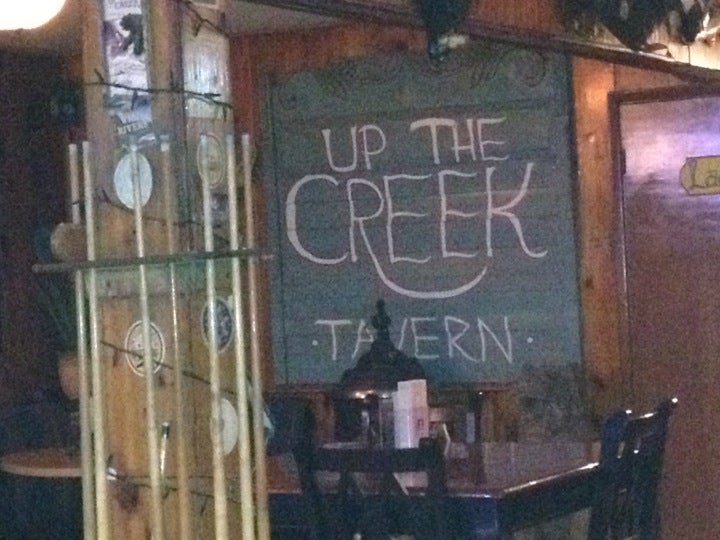 UP THE
CREEK
· TAVERN ·